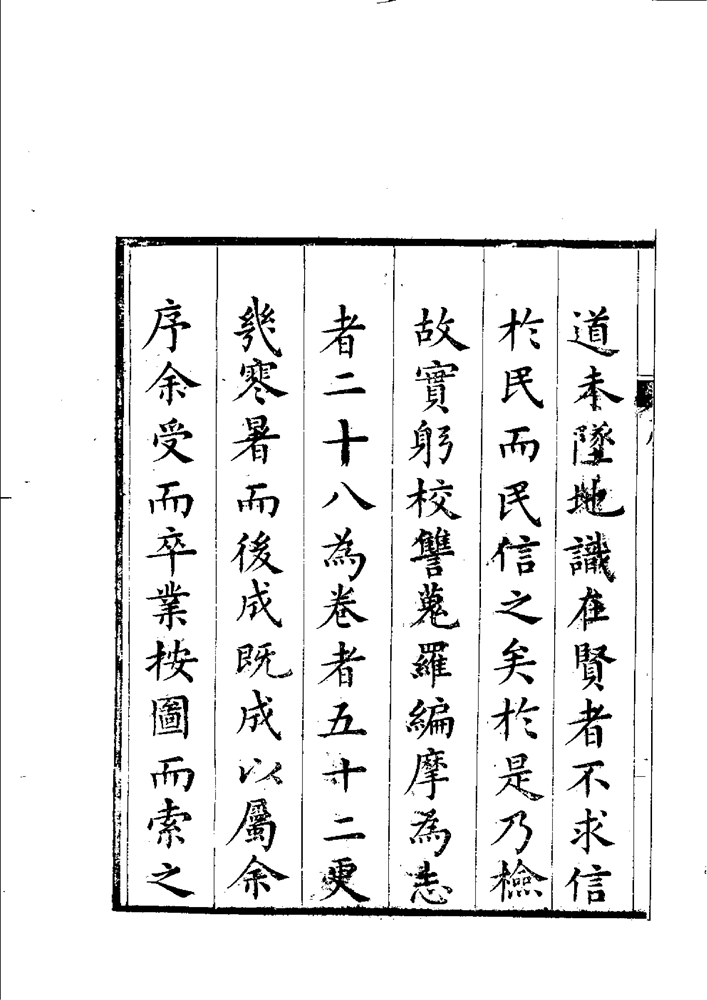 道未墜地識在賢者不求信
於民而民信之矣於是乃檢
故實躬校讐蒐羅編摩為志
者二十八為卷者五十二更
幾寒暑而後成既成以屬余
序余受而卒業按圖而索之